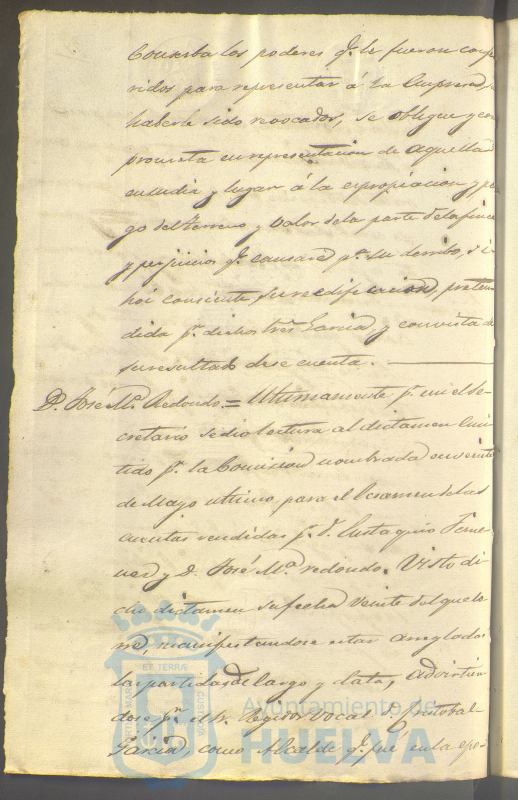 conserba los poderes qe. le fueron confe
ridos para representar á la Empresa,
haberle sido revocados, se obligue y com
prometa en representacion de aquella á
acudir y lugar á la expropiacion y pa
go del terreno y valor de la parte de la finca
y perjuicios qe. causare pr. su derribo, si
hoi consiente su redificacion, preten
dida pr. dicho Sres. Garcia, y con vista de
su resultado dese cuenta.
D. José Ma. Redondo. = Ultimamente pr. mi el Se-
cretario se dio lectura al dictamen emi-
tido pr. la Comision nombrada en veinte
de Mayo ultimo para el Ecsamen de las
cuentas rendidas pr. D. Eustaquio
y D. José Ma. redondo. Visto di-
cho dictamen su fecha veinte del que co-
rre, manifestandose estar arregladas
las partidas de cargo y data, advirtien
dose pr. el Sr. Regidor Vocal D. Cristobal
Garcia, como Alcalde qe. fue en la epo-
ET TERRÆ
Ayuntamiento de
HUELVA